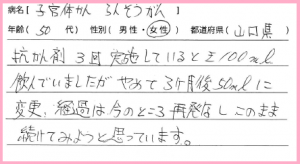 病名[ 子宮体がん らんそうがん ]
年齢( 50 代) 性別( 男性・女性 ) 都道府県( 山口県 )
抗がん剤 3回 実施しているとき100ml
飲んでいましたが やめて3ヶ月後50mlに
変更、経過は今のところ再発なし このまま
続けてみようと思っています。